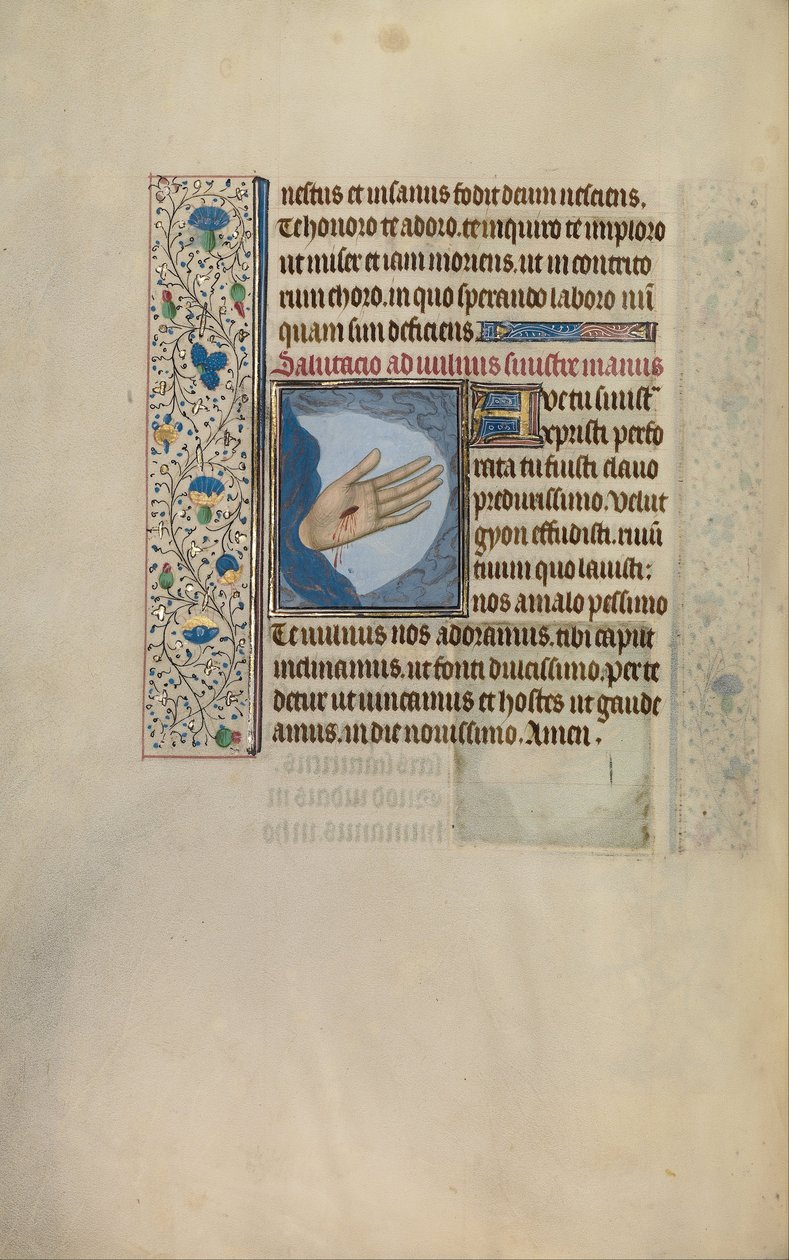 nestus et insanus fodit deum nesciens.
Te honoro te adoro. te inquiro te imploro
ut miser et iam moriens. ut in contrito
rum choro. in quo sperando laboro nū
quam sim deficiens
Salutacio ad vulnus sinistre manus
Ave tu sinist
xpristi perfo
rata tu fuisti clavo
predurissimo. Velut
gyon effudisti. rivū
tuum quo lavisti:
nos a malo pessimo
Te vulnus nos adoramus. tibi caput
inclinamus. ut fonti dulcissimo. per te
detur ut vincamus et hostes ut gaude
amus. in die novissimo. Amen.